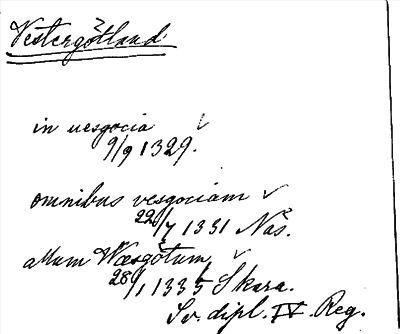 Vestergötland.
in uesgocia ✓
9/9 1329.
omnibus vesgociam ✓
22/7 1331 Näs.
allum Wæsgøtum ✓
28/1 1335 Skara.
Sv. dipl. IV. Reg.